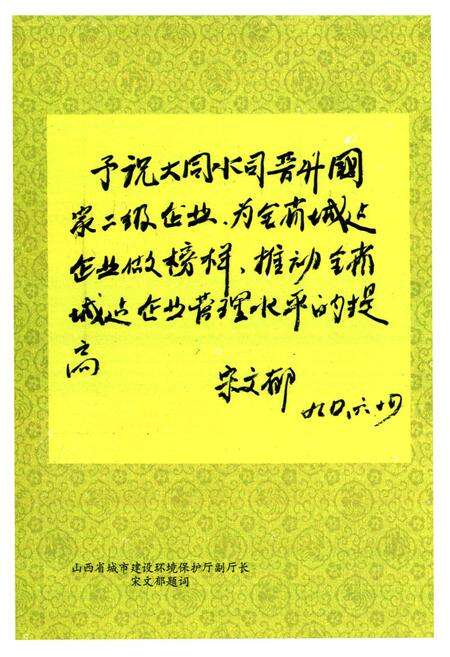 予祝大同水司晋升國
家二级企业、为全省城建
企业做榜样、推动全省
城建企业管理水平的提
高
宋文郁
九〇.六.廿四
山西省城市建设环境保护厅副厅长
宋文郁题词